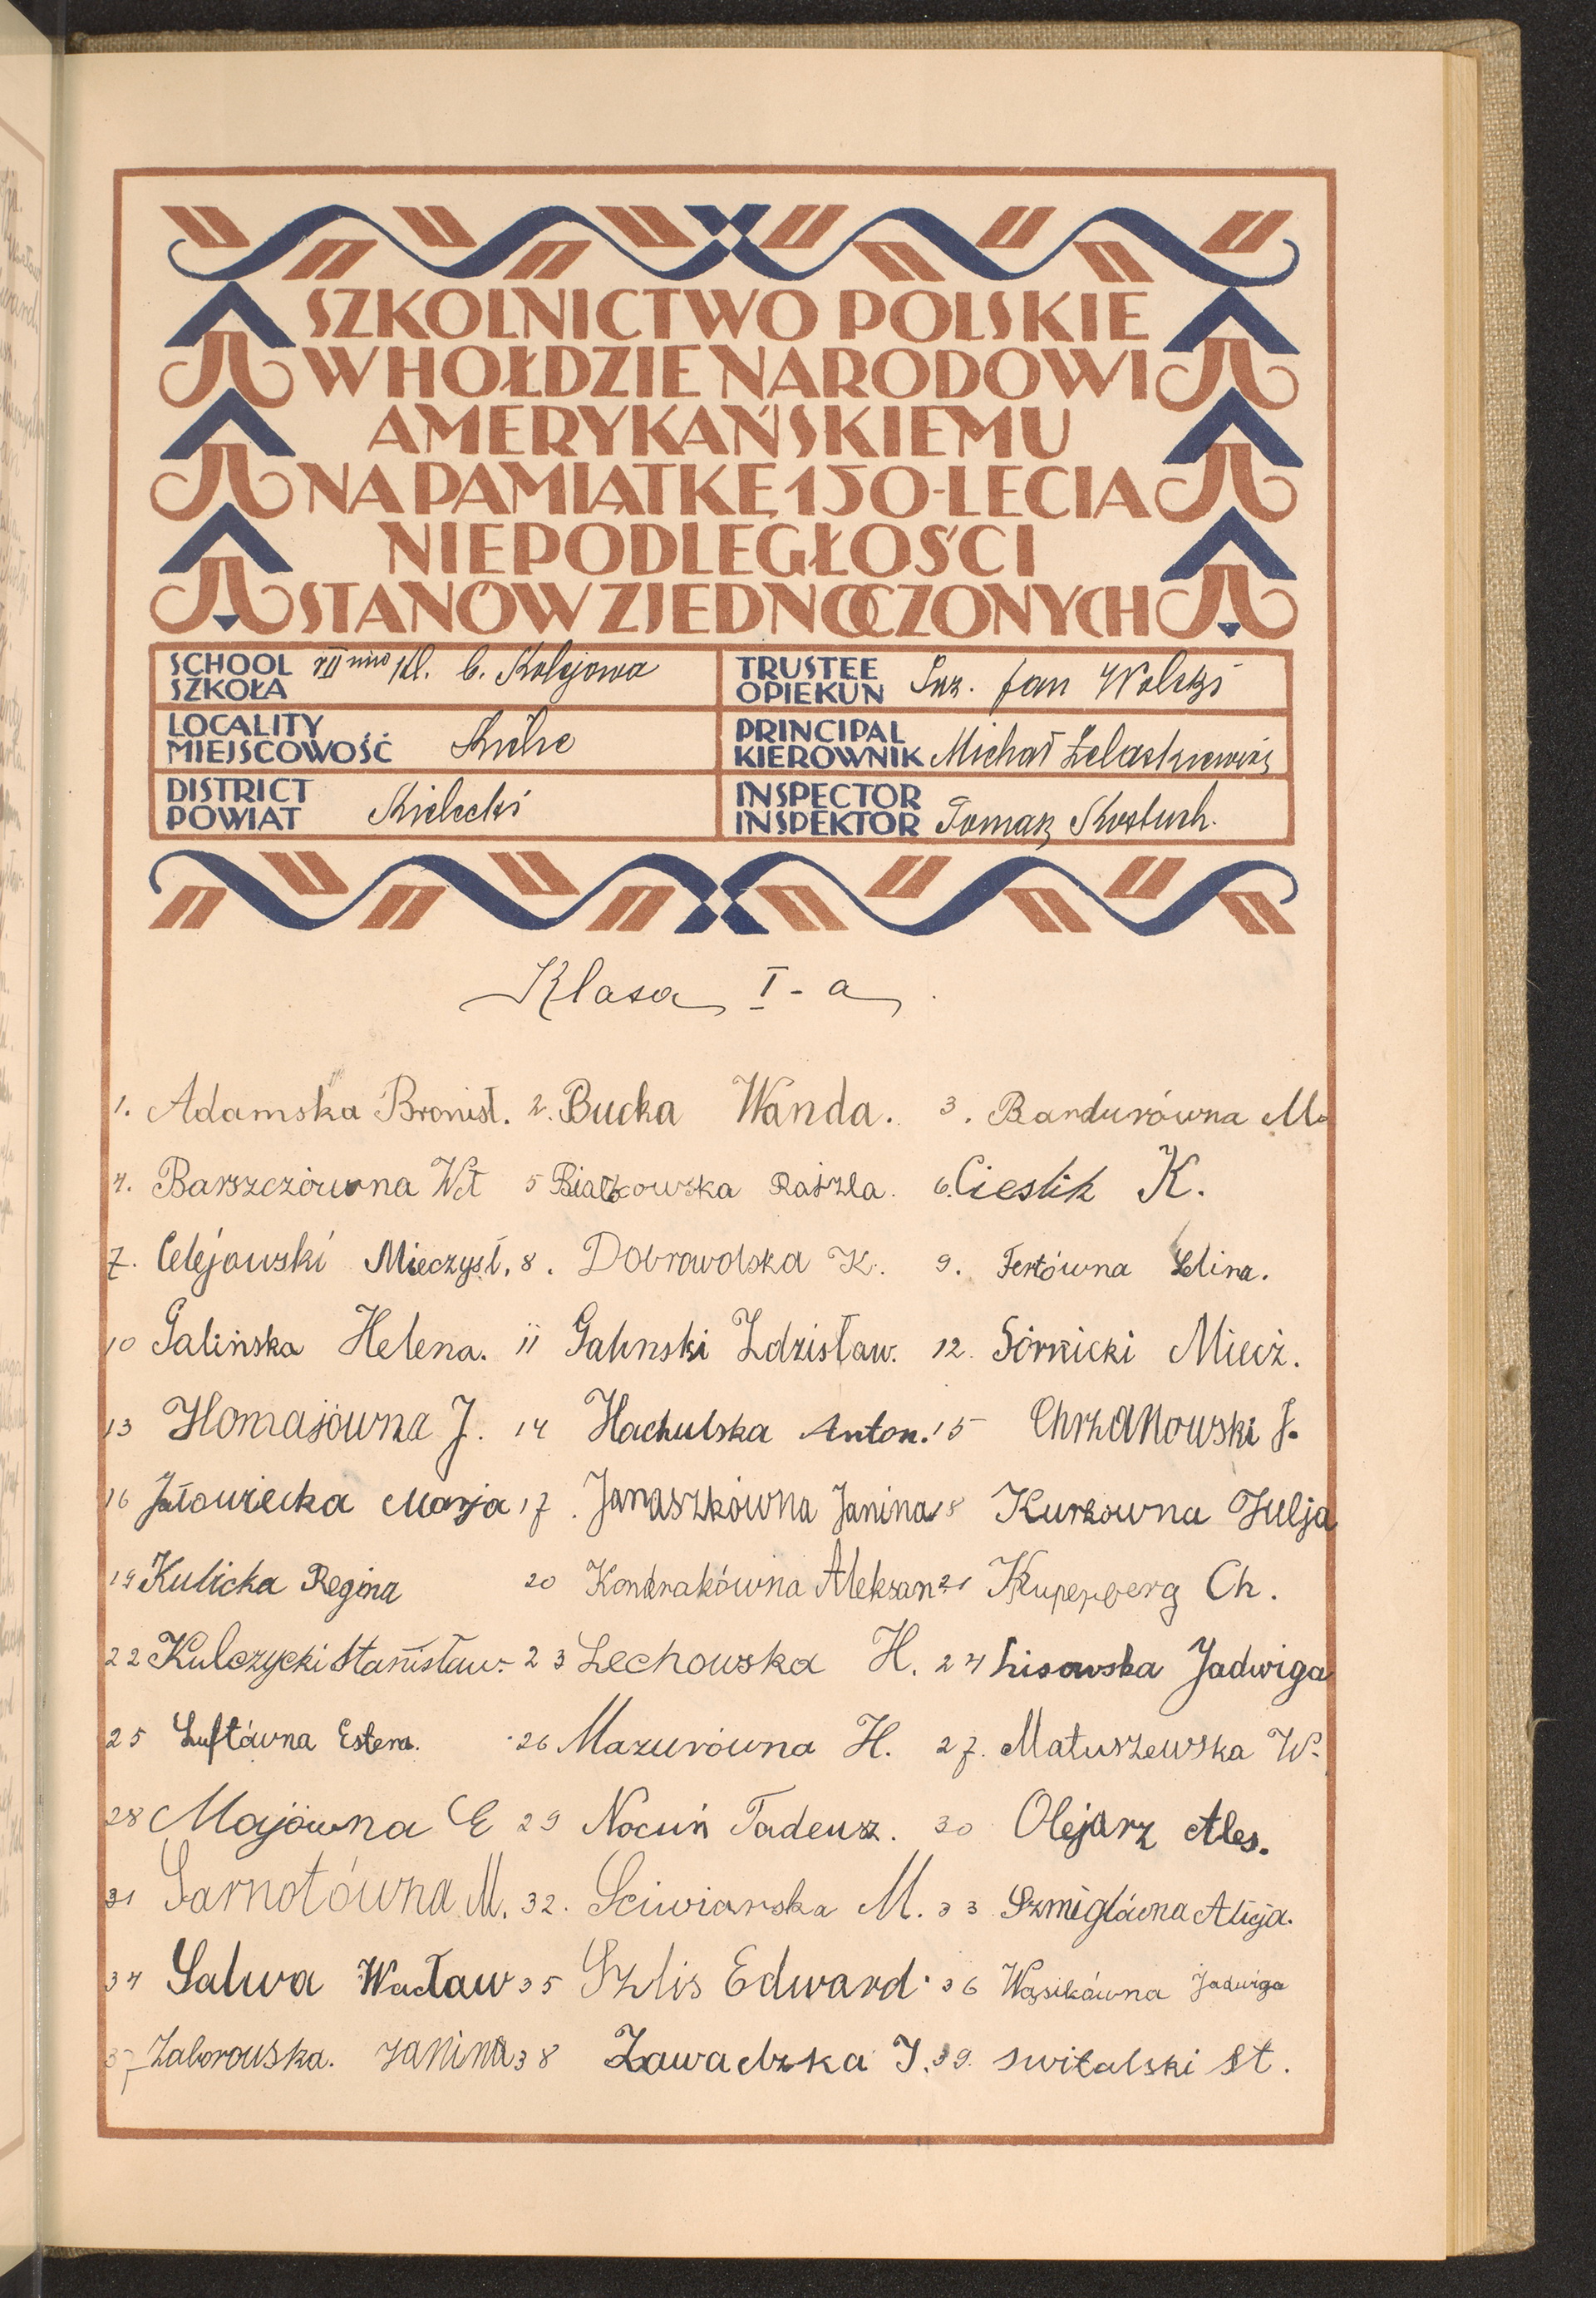 SZKOLNICTWO POLSKIE
W HOŁDZIE NARODOWI
AMERYKAŃSKIEMU
NA PAMIĄTKĘ 150-LECIA
NIEPODLEGŁOŚCI
STANÓW ZJEDNOCZONYCH
SCHOOL SZKOŁA VII mio kl. Kolejowa
TRUSTEE OPIEKUN Inż. Jan Wolski
LOCALITY MIEJSCOWOŚĆ Kielce
PRINCIPAL KIEROWNIK Michał Żelaskiewicz
DISTRICT POWIAT Kielecki
INSPECTOR INSPEKTOR Tomasz Kostuch.
Klasa I-a
1. Adamska Bronisł. 2. Bucka Wanda. 3. Bandurówna M.
4. Barszczówna Wł 5 Białkowska Rajzla. 6. Cieslik K.
7. Celejowski Mieczysł. 8. Dobrowolska K. 9. Fertówna Lelina.
10 Galińska Helena. 11 Galinski Zdzisław. 12. Górnicki Miecz.
13 Homajówna J. 14 Hachulska Anton. 15 Chrzanowski J.
16 Jałowiecka Marja 17. Janaszkówna Janina 18 Kurkowna Julja
19 Kulicka Regina 20 Kondrakówna Aleksan. 21 Kuperberg Ch.
22 Kulczycki Stanisław. 23 Lechowska H. 24 Lisowska Jadwiga
25 Luftówna Estera. 26 Mazurówna H. 27. Matuszewska W.
28 Majówna E 29 Nocuń Tadeusz. 30 Olejarz Ales.
31 Sarnotówna M. 32. Sciwiarska M. 33 Szmiglówna Alicja.
34 Salwa Wacław 35 Szlis Edward. 36 Wąsikówna Jadwiga
37 Zaborowska. Janina 38 Zawadzka J. 39. switalski St.